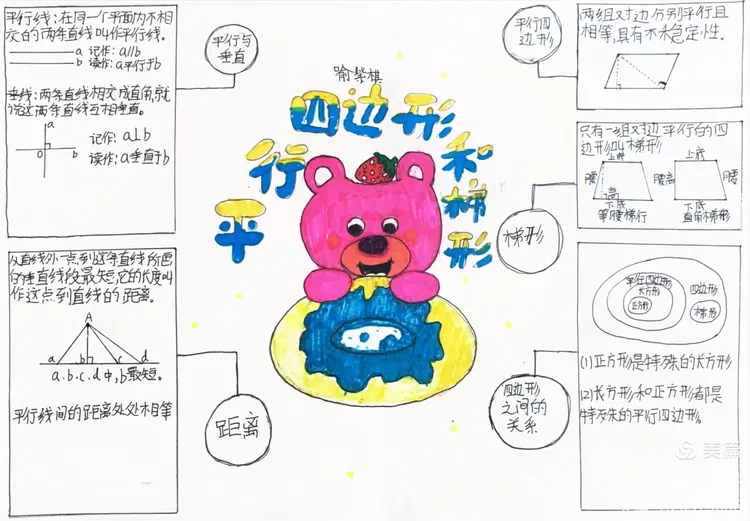 平行线:在同一个平面内不相
交的两条直线叫作平行线。
a 记作:a//b
b 读作:a平行于b
垂线:两条直线相交成直角,就
说这两条直线互相垂直。
a
O b
记作:a⊥b
读作:a垂直于b
平行与
垂直
喻紫棋
平行四边形和梯形
平行四
边形
两组对边分别平行且
相等,具有不稳定性。
只有一组对边平行的四
边形叫梯形
上底 上底
腰 腰 腰高 腰
高
下底 下底
等腰梯行 直角梯形
梯形
从直线外一点到这条直线所画
的垂直线段最短,它的长度叫
作这点到直线的距离。
A
a b c d
a.b.c.d中,b最短。
平行线间的距离处处相等
距离
四边形
之间的
关系
平行四边形
长方形
正方形
四边形
梯形
(1)正方形是特殊的长方形
(2)长方形和正方形都是
特殊的平行四边形。
美篇